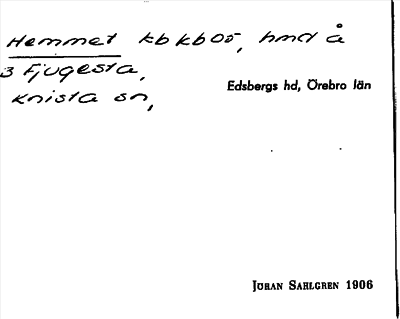 Hemmet kb kb Oö, hmd å
3 Fjugesta,
Knista sn,
Edsbergs hd, Örebro län
JÖRAN SAHLGREN 1906